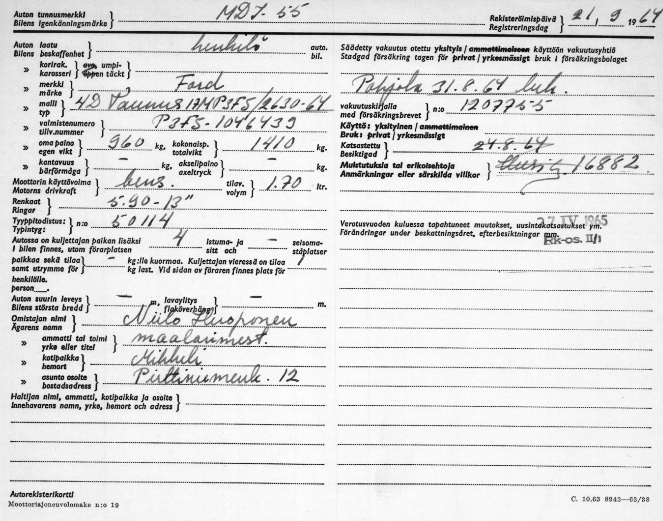 Auton tunnusmerkki
Bilens igenkänningsmärke } MDJ-55
Rekisteröimispäivä
Registreringsdag } 21, 9 1964
Auton laatu
Bilens beskaffenhet } henkilö auto. bil.
» korirak. karosseri } avo, umpi- öppen täckt
» merkki märke } Ford
» malli typ } 4D Taunus 17M P3F5/2630-64
» valmistenumero tillv.nummer } P3F5-1046439
» oma paino egen vikt } 960 kg, kokonaisp. totalvikt } 1410 kg.
» kantavuus bärförmåga } — kg, akselipaino axeltryck } — kg.
Moottorin käyttövoima
Motorns drivkraft } bens. tilav. volym } 1.70 ltr.
Renkaat
Ringar } 5.90-13"
Tyyppitodistus:
Typintyg: } n:o 50114
Autossa on kuljettajan paikan lisäksi 4 istuma- ja — seisoma-
I bilen finnes, utom förarplatsen sitt och ståplatser
paikkaa sekä tilaa — kg:lle kuormaa. Kuljettajan vieressä on tilaa 1
samt utrymme för kg last. Vid sidan av föraren finnes plats för
henkilölle.
person
Auton suurin leveys
Bilens största bredd } — m, lavaylitys flaköverhäng } — m.
Omistajan nimi
Ägarens namn } Niilo Huoponen
» ammatti tai toimi yrke eller titel } maalarimest.
» kotipaikka hemort } Mikkeli
» asunto osoite bostadsadress } 12
Haltijan nimi, ammatti, kotipaikka ja osoite
Innehavarens namn, yrke, hemort och adress }
Autorekisterikortti
Moottoriajoneuvolomake n:o 19
Säädetty vakuutus otettu yksityis/ammattimaiseen käyttöön vakuutusyhtiö
Stadgad försäkring tagen för privat/yrkesmässigt bruk i försäkringsbolaget
Pohjola 31.8.64 luk.
vakuutuskirjalla
med försäkringsbrevet } n:o 1207755
Käyttö: yksityinen/ammattimainen
Bruk: privat/yrkesmässigt
Katsastettu
Besiktigad } 24.8.64
Muistutuksia tai erikoisehtoja
Anmärkningar eller särskilda villkor } 16882
Verotusvuoden kuluessa tapahtuneet muutokset, uusintakatsastukset ym.
Förändringar under beskattningsåret, efterbesiktningar mm.
27.IV.1965
Rk-os. II/1
C. 10.63 8943—63/88